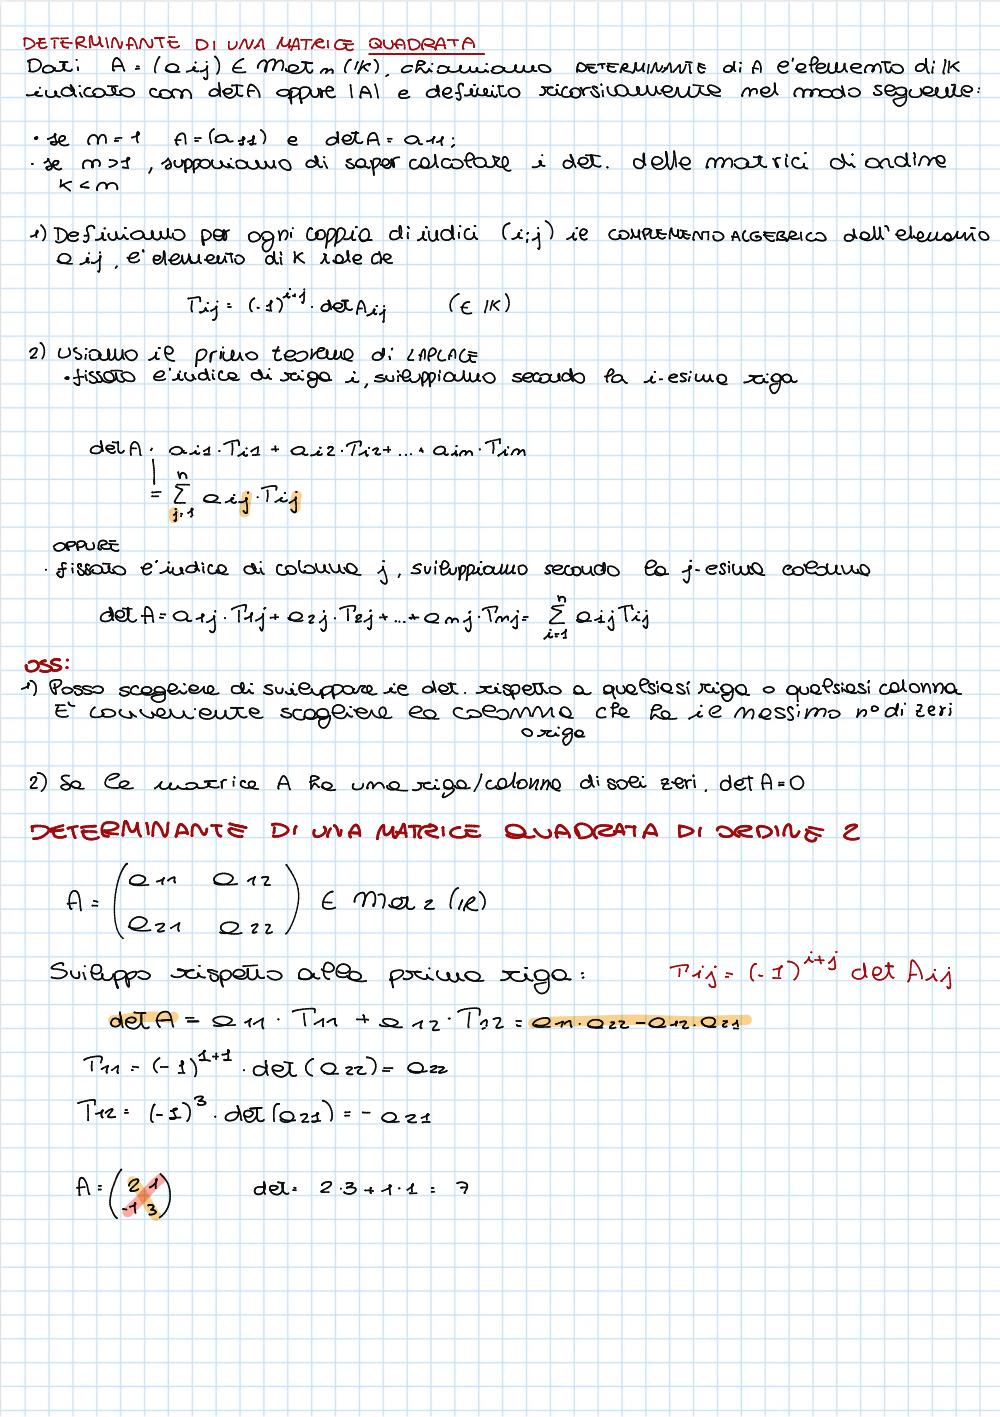 DETERMINANTE DI UNA MATRICE QUADRATA
Dati A = (aij) ∈ Mat n (K), chiamiamo DETERMINANTE di A l'elemento di K
indicato con det A oppure |A| e definito ricorsivamente nel modo seguente:
• se n = 1 A = (a11) e det A = a11;
• se n > 1, supponiamo di saper calcolare i det. delle matrici di ordine
k < n
1) Definiamo per ogni coppia di indici (i;j) il COMPLEMENTO ALGEBRICO dell'elemento
aij, l'elemento di K tale che
Tij = (-1)^i+j · det Aij (∈ K)
2) Usiamo il primo teorema di LAPLACE
• fissato l'indice di riga i, sviluppiamo secondo la i-esima riga
det A = ai1 · Ti1 + ai2 · Ti2 + ... + ain · Tin
= n Σ j=1 aij · Tij
OPPURE
• fissato l'indice di colonna j, sviluppiamo secondo la j-esima colonna
det A = a1j · T1j + a2j · T2j + ... + anj · Tnj = n Σ i=1 aij Tij
OSS:
1) Posso scegliere di sviluppare il det. rispetto a qualsiasi riga o qualsiasi colonna
E' conveniente scegliere la colonna che ha il massimo n° di zeri
o riga
2) Se la matrice A ha una riga/colonna di soli zeri, det A = 0
DETERMINANTE DI UNA MATRICE QUADRATA DI ORDINE 2
A = (a11 a12
a21 a22) ∈ Mat 2 (R)
Sviluppo rispetto alla prima riga: Tij = (-1)^i+j det Aij
det A = a11 · T11 + a12 · T12 = a11 · a22 - a12 · a21
T11 = (-1)^1+1 · det (a22) = a22
T12 = (-1)^3 · det (a21) = - a21
A = (2 1
-1 3) det = 2 · 3 + 1 · 1 = 7